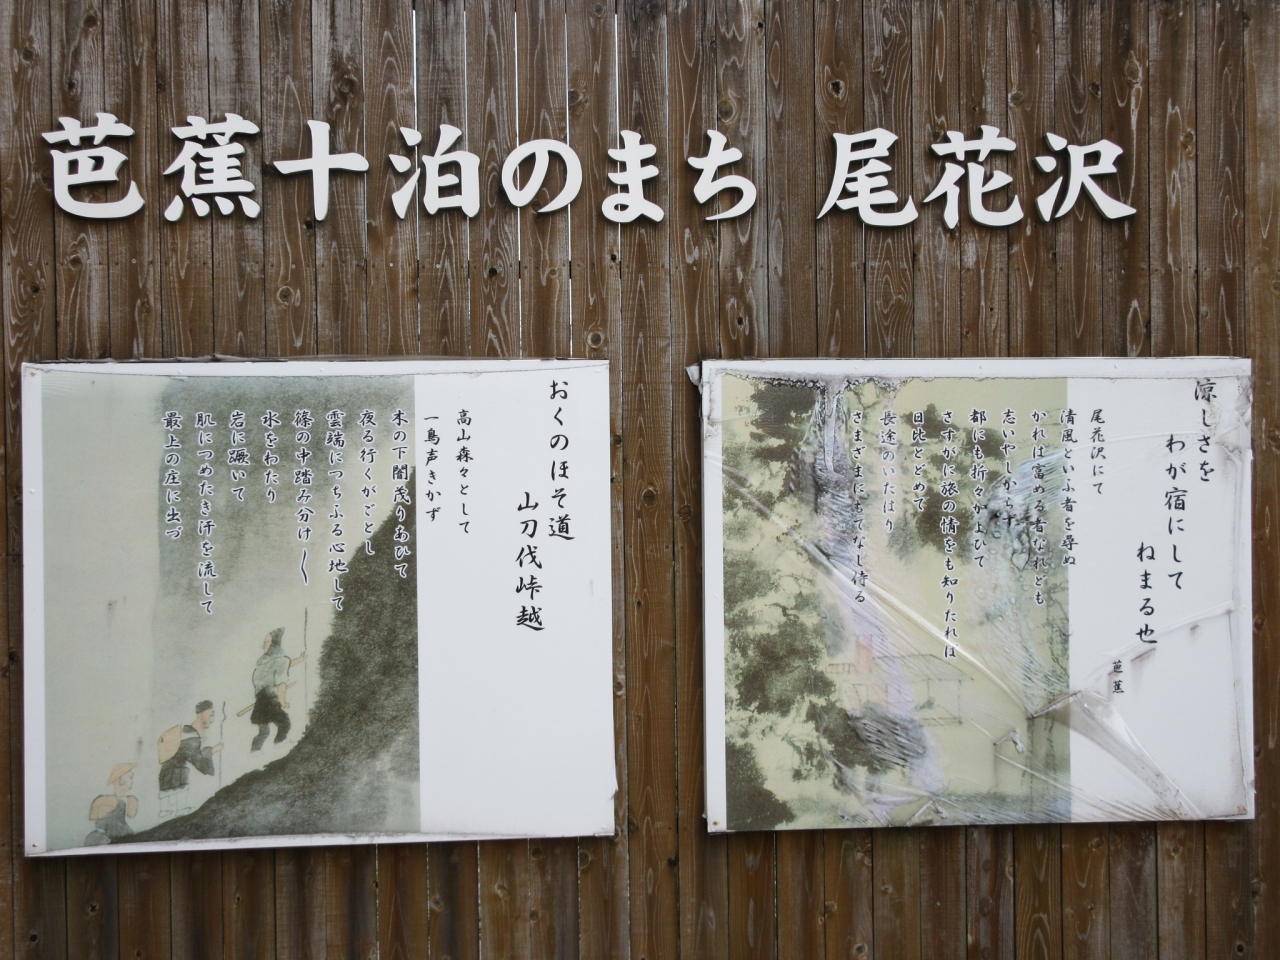 芭蕉十泊のまち 尾花沢
涼しさを
わが宿にして
ねまる也
芭蕉
尾花沢にて
清風といふ者を尋ぬ
かれは富める者なれども
志いやしからず
都にも折々かよひて
さすがに旅の情をも知りたれば
日比とどめて
長途のいたはり
さまざまにもてなし侍る
おくのほそ道
山刀伐峠越
高山森々として
一鳥声きかず
木の下闇茂りあひて
夜る行くがごとし
雲端につちふる心地して
篠の中踏み分け〳〵
水をわたり
岩に蹶いて
肌につめたき汗を流して
最上の庄に出づ